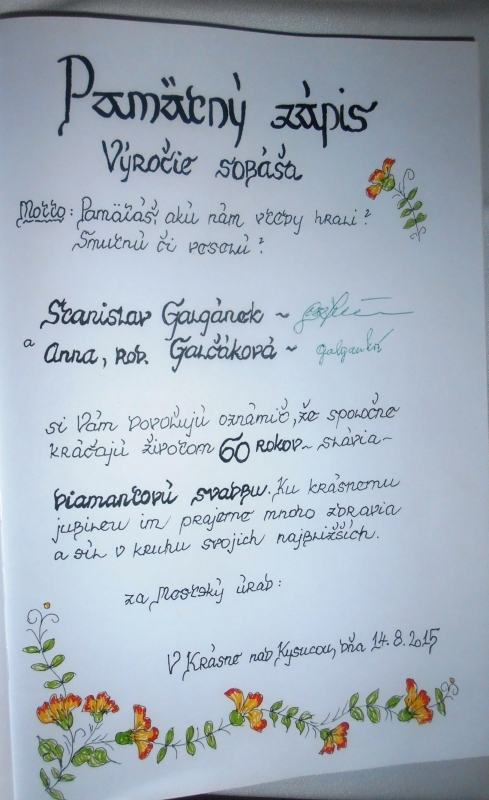 Pamätný zápis
Výročie sobáša
Motto: Pamätáš, akú nám vtedy hrali?
Smutnú či veselú?
Stanislav Galgánek ~
a Anna, rod. Galčáková ~ galganková
si Vám dovoľujú oznámiť, že spoločne
kráčajú životom 60 rokov - slávia -
diamantovú svadbu. Ku krásnemu
jubileu im prajeme mnoho zdravia
a síl v kruhu svojich najbližších.
za Mestský úrad:
V Krásne nad Kysucou, dňa 14.8.2015